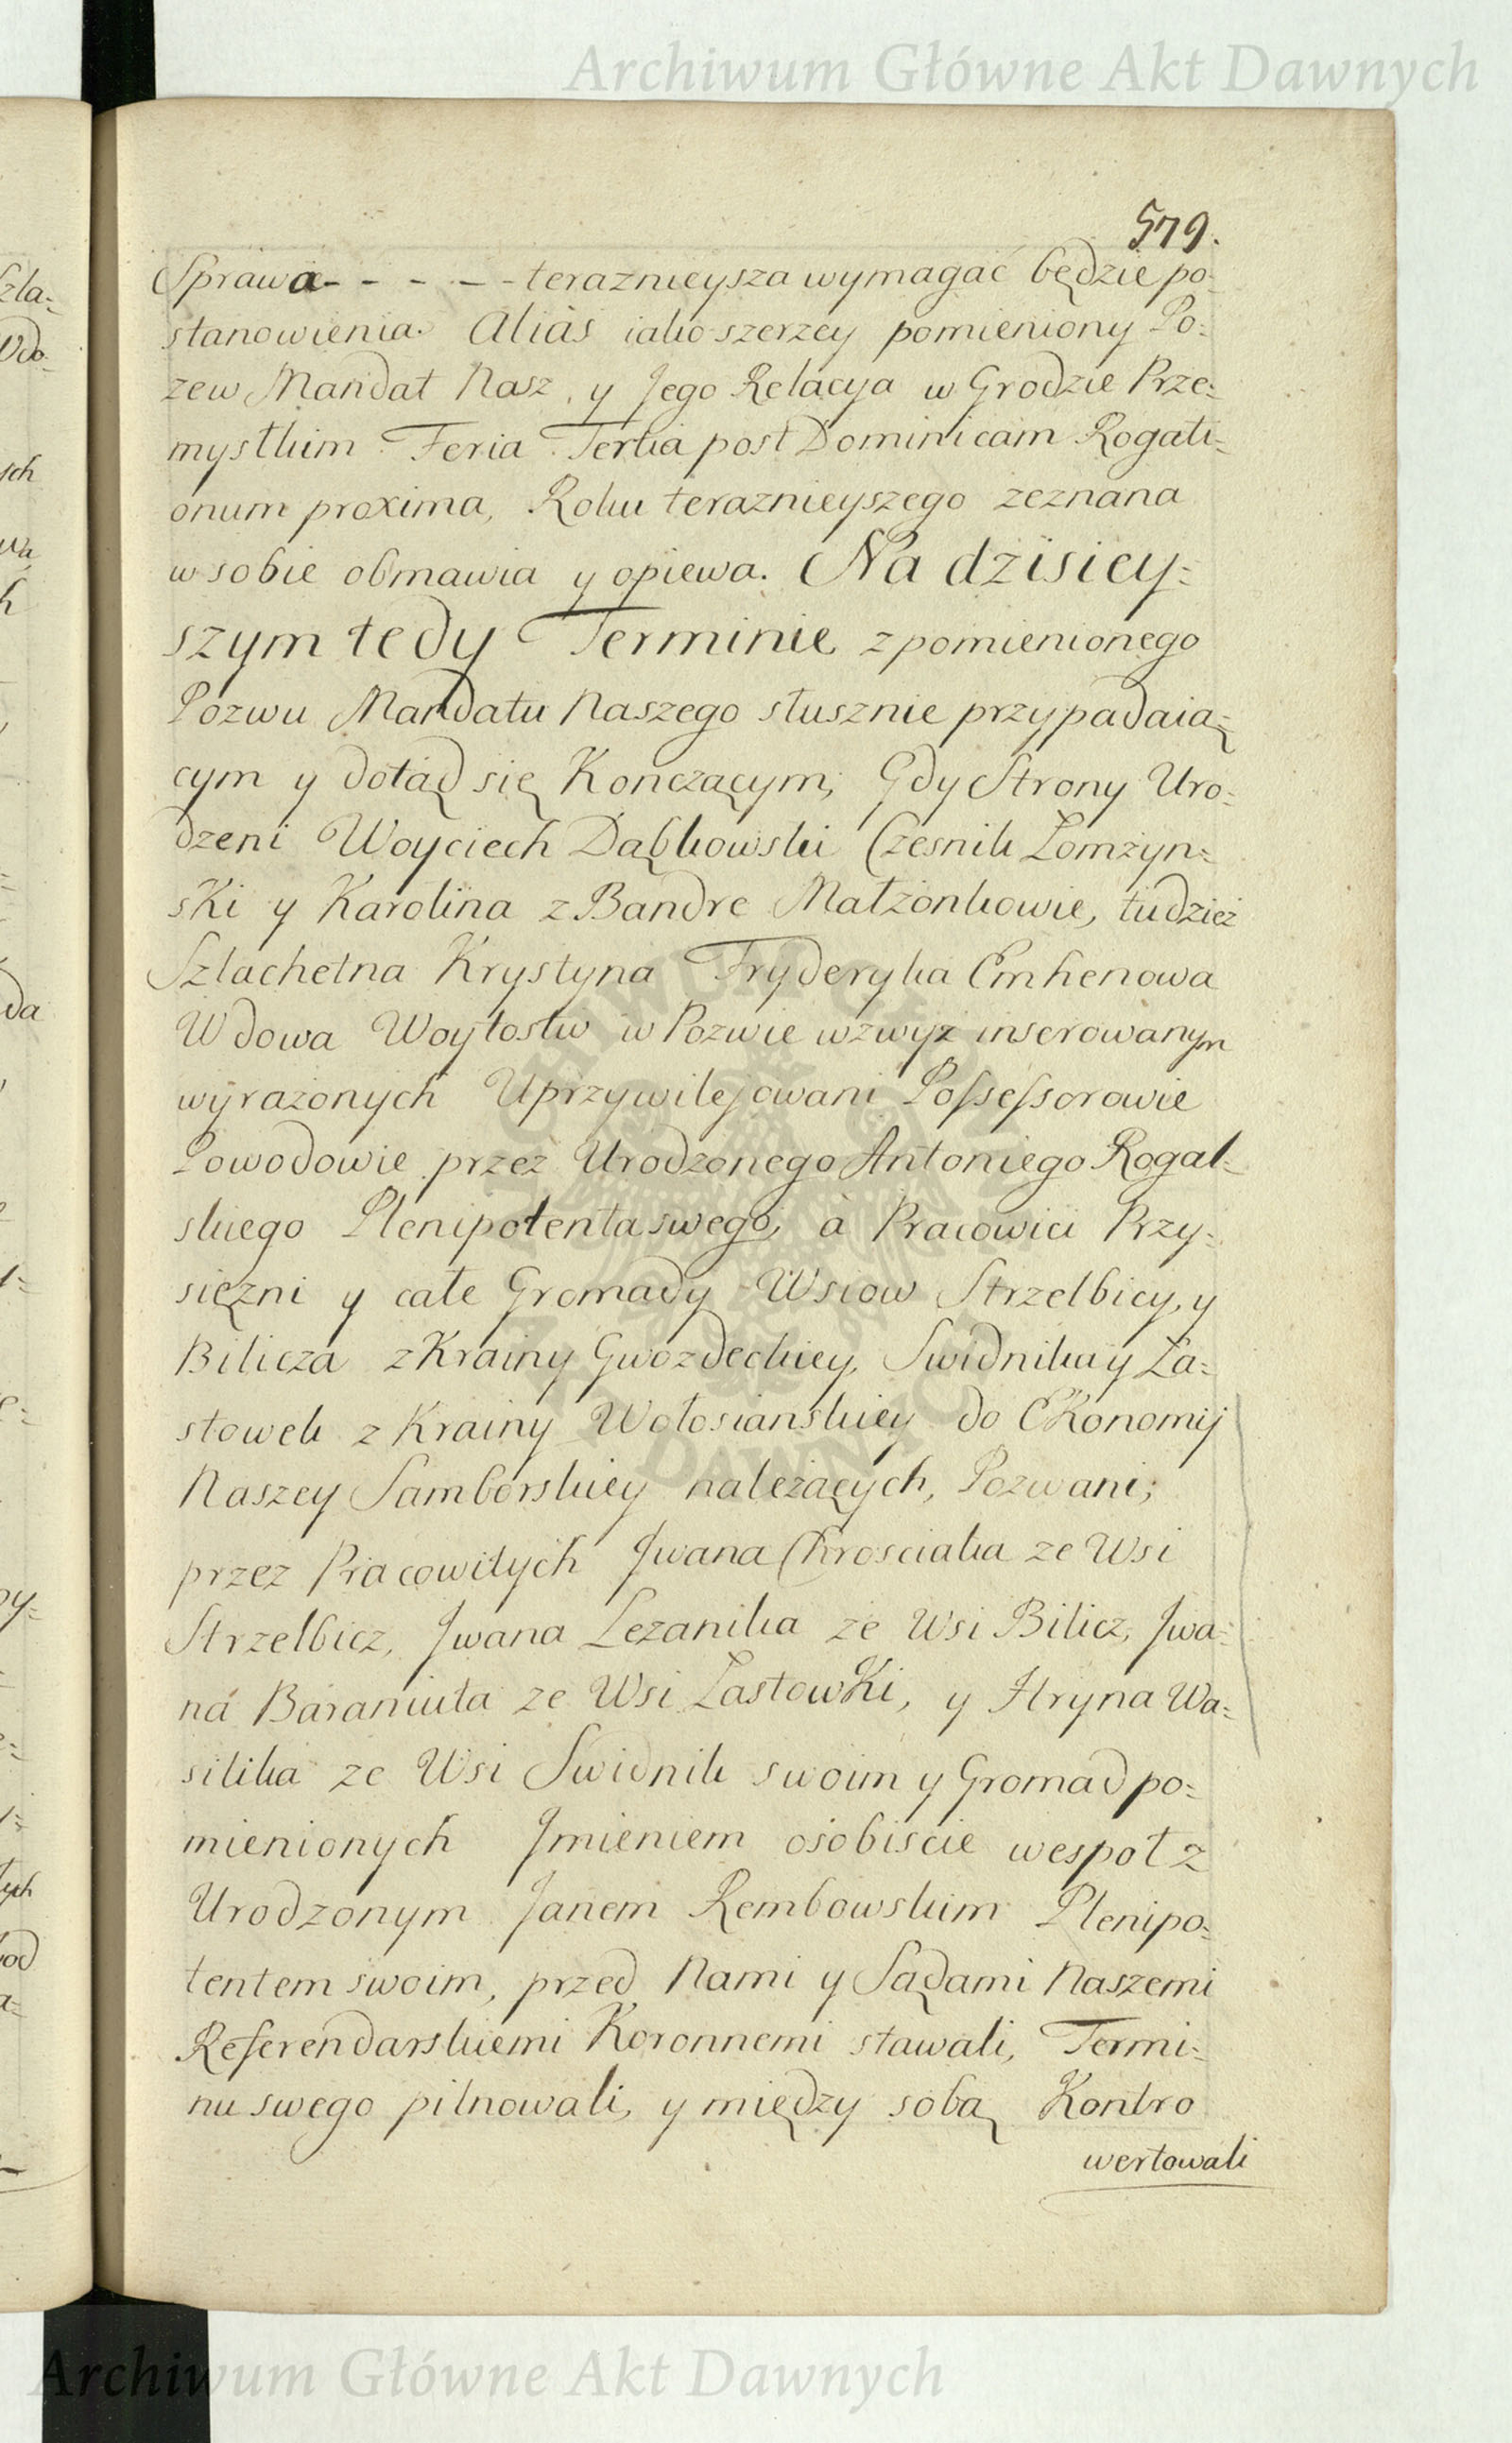 Archiwum Główne Akt Dawnych
579.
Sprawa - - - - - teraznieysza wymagać będzie po-
stanowienia. Alias iako szerzey pomieniony Po=
zew Mandat Nasz, y Jego Relacya w Grodzie Prze=
myslkim Feria Tertia post Dominicam Rogati=
onum proxima, Roku teraznieyszego zeznana
w sobie obmawia y opiewa. Na dzisiey=
szym tedy Terminie z pomienionego
Pozwu Mandatu Naszego słusznie przypadaią=
cym y dotąd się Konczącym, Gdy Strony Uro=
dzeni Woyciech Dąbkowski Czesnik Łomżyn=
ski y Karolina z Bandre Małżonkowie, tudzież
Szlachetna Krystyna Fryderyka Emhenowa
Wdowa Woytostw w Pozwie wzwyż inserowanym
wyrażonych Uprzywilejowani Possessorowie
Powodowie przez Urodzonego Antoniego Rogal=
skiego Plenipotenta swego, à Pracowici Przy=
siężni y całe Gromady Wsiow Strzelbicy, y
Bilicza z Krainy Gwozdeckiey, Swidnika y Ła=
stowek z Krainy Wołosianskiey do Ekonomij
Naszey Samborskiey należących, Pozwani;
przez Pracowitych Jwana Chrosciaka ze Wsi
Strzelbicz, Jwana Lezanika ze Wsi Bilicz, Jwa=
na Baraniuta ze Wsi Łastowki, y Hryna Wa=
silika ze Wsi Swidnik swoim y Gromad po=
mienionych Jmieniem osobiscie wespoł z
Urodzonym Janem Rembowskim Plenipo=
tentem swoim, przed Nami y Sądami Naszemi
Referendarskiemi Koronnemi stawali, Termi=
nu swego pilnowali, y między sobą Kontro
wertowali
Archiwum Główne Akt Dawnych